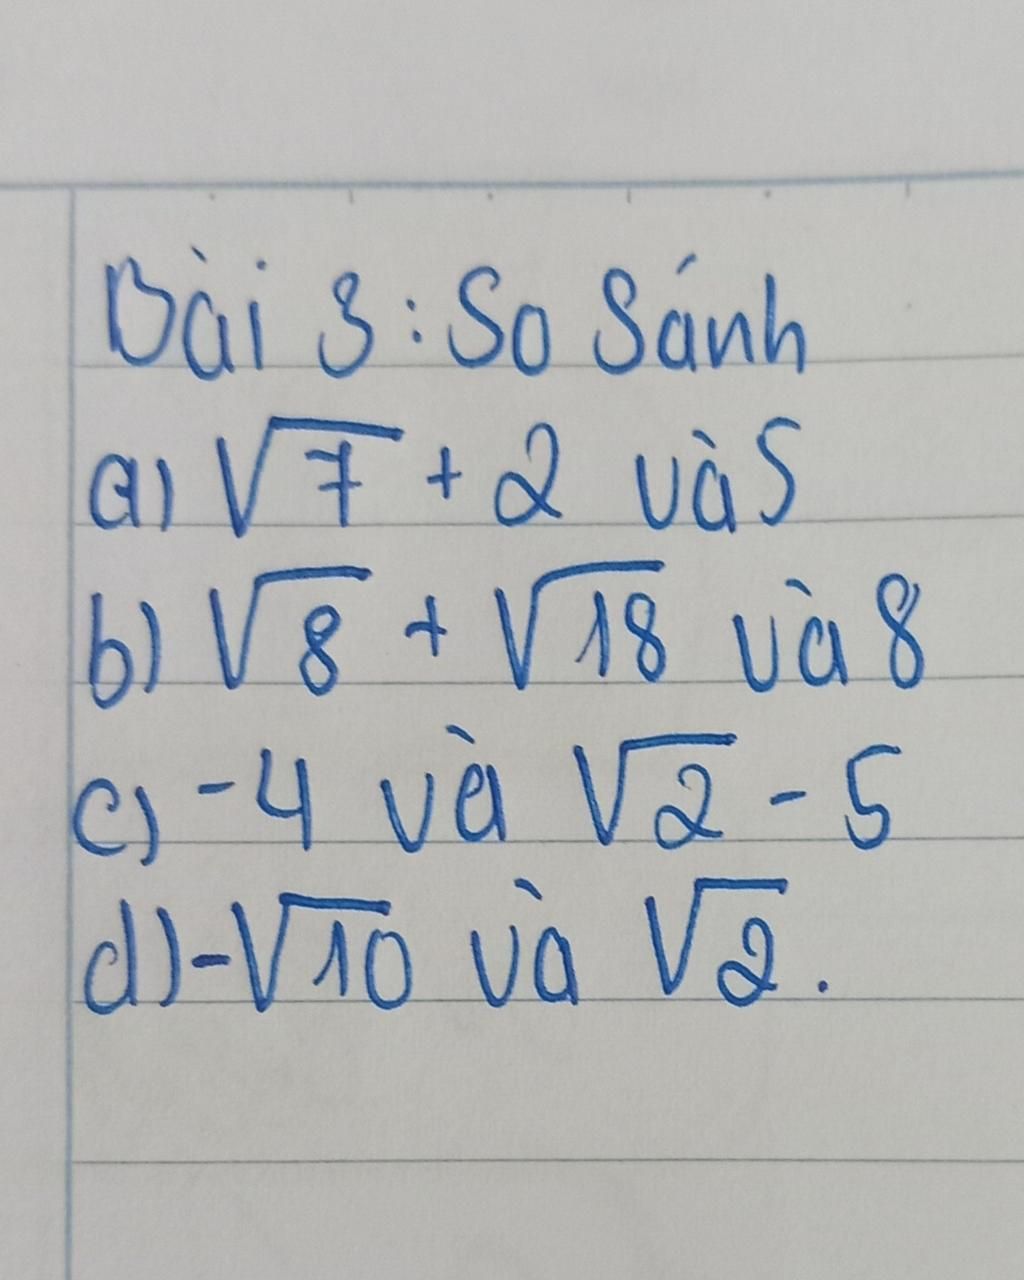 Bài 3: So Sánh
a) √7 + 2 và 5
b) √8 + √18 và 8
c) -4 và √2 - 5
d) -√10 và √2.